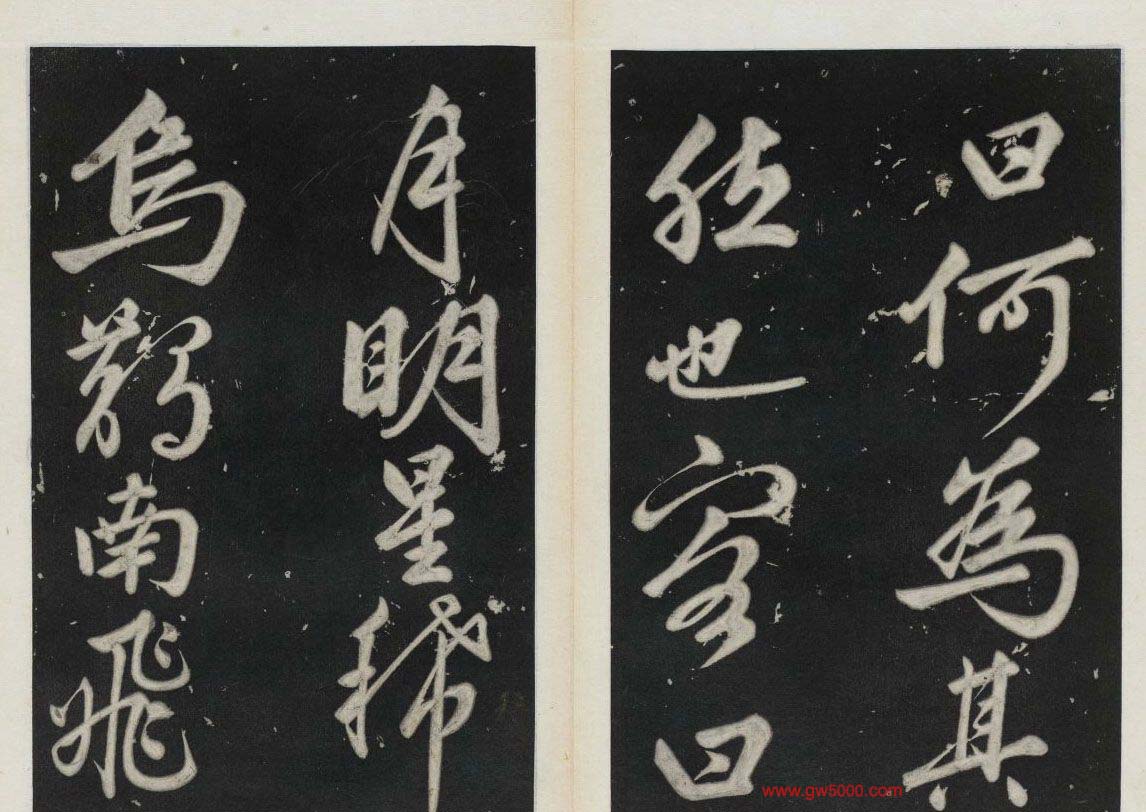 曰何為其
然也客曰
月明星稀
烏鵲南飛
www.gw5000.com